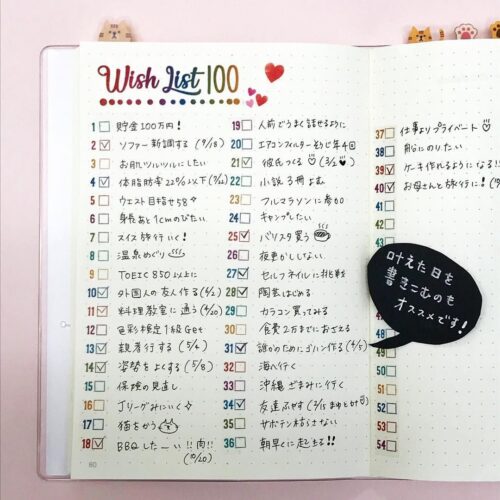 Wish List 100
1 貯金100万円!
2 ソファー新調する (9/18)
3 お肌ツルツルにしたい
4 体脂肪率22%以下 (7/22)
5 ウエスト目指せ58
6 身長あと1cmのびたい
7 スイス旅行いく!
8 温泉めぐり
9 TOEIC 850以上に
10 外国人の友人作る (6/2)
11 料理教室に通う (4/20)
12 色彩検定1級Get
13 親孝行する (5/6)
14 姿勢をよくする (5/8)
15 保険の見直し
16 Jリーグみにいく
17 猫をかう
18 BBQしたーい!!肉!!
(10/20)
19 人前でうまく話せるように
20 エアコンフィルターそうじ年4回
21 彼氏つくる (3/2)
22 小説3冊よむ
23 フルマラソンに参加
24 キャンプしたい
25 バリスタ買う
26 夜更かししない
27 セルフネイルに挑戦
28 陶芸はじめる
29 カラコン買ってみる
30 食費2万までにおさえる
31 誰かのためにゴハン作る (4/5)
32 海へ行く
33 沖縄ざまみに行く
34 友達ふやす (2/15 まゆとかす)
35 サボテン枯らさない
36 朝早くに起きる!!
37 仕事よりプライベート
38 船にのりたい
39 ケーキ作れるようになる!!
40 お母さんと旅行に!
叶えた日を
書きこむのも
オススメです!
48
49
50
51
52
53
54
60